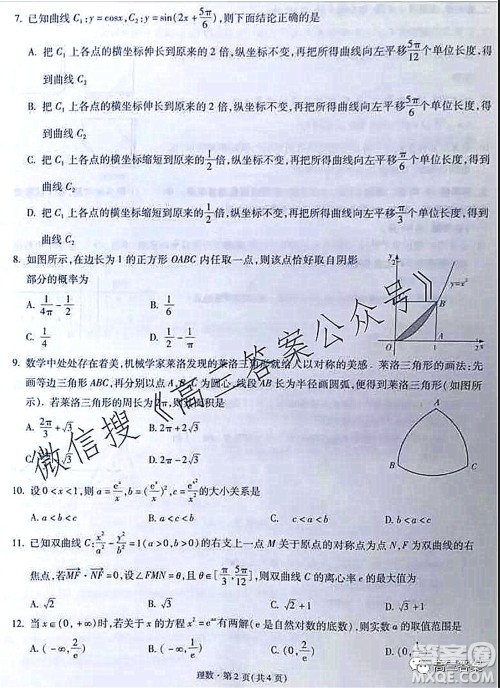 7. 已知曲线 C₁:y=cosx,C₂:y=sin(2x+5π/6),则下面结论正确的是
A. 把 C₁ 上各点的横坐标伸长到原来的 2 倍,纵坐标不变,再把所得曲线向左平移5π/12个单位长度,得
到曲线 C₂
B. 把 C₁ 上各点的横坐标伸长到原来的 2 倍,纵坐标不变,再把所得曲线向左平移5π/6个单位长度,得
到曲线 C₂
C. 把 C₁ 上各点的横坐标缩短到原来的1/2倍,纵坐标不变,再把所得曲线向左平移π/6个单位长度,得
到曲线 C₂
D. 把 C₁ 上各点的横坐标缩短到原来的1/2倍,纵坐标不变,再把所得曲线向左平移π/3个单位长度,得
到曲线 C₂
8. 如图所示,在边长为 1 的正方形 OABC 内任取一点,则该点恰好取自阴影
部分的概率为
A. 1/4π-1/2
B. 1/6
C. 1/4
D. 1/π-1/2
y
2
y=x²
B
O
1
2x
9. 数学中处处存在着美,机械学家莱洛发现的莱洛三角形就给人以对称的美感. 莱洛三角形的画法:先
画等边三角形 ABC,再分别以点 A、B、C 为圆心,线段 AB 长为半径画圆弧,便得到莱洛三角形(如图所
示). 若莱洛三角形的周长为2π,则其面积是
A. 2π/3+√3
B. 2π+2√3
C. 2π-√3
D. 2π-2√3
A
B
C
10. 设 0<x<1,则 a=eˣ/x,b=(eˣ/x)²,c=eˣ²/x²的大小关系是
A. a<b<c
B. a<c<b
C. b<a<c
D. c<a<b
11. 已知双曲线 C:x²/a²-y²/b²=1(a>0,b>0)的右支上一点 M 关于原点的对称点为点 N,F 为双曲线的右
焦点,若MF·NF=0,设∠FMN=θ,且θ∈[π/3,5π/12],则双曲线 C 的离心率 e 的最大值为
A. √2
B. √3
C. √2+1
D. √3+1
12. 当 x∈(0,+∞)时,若关于 x 的方程 x²=eᵃˣ有两解(e 是自然对数的底数),则实数 a 的取值范围是
理数·第 2 页(共 4 页)
微信搜《高三答案公众号》
高三答案